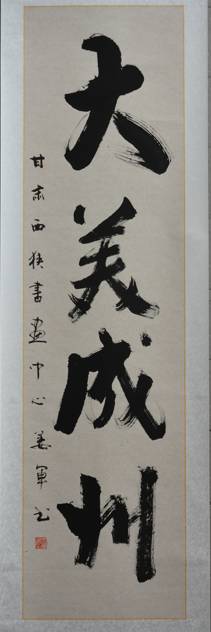 大美成州
甘肃西狭书画中心姜军书